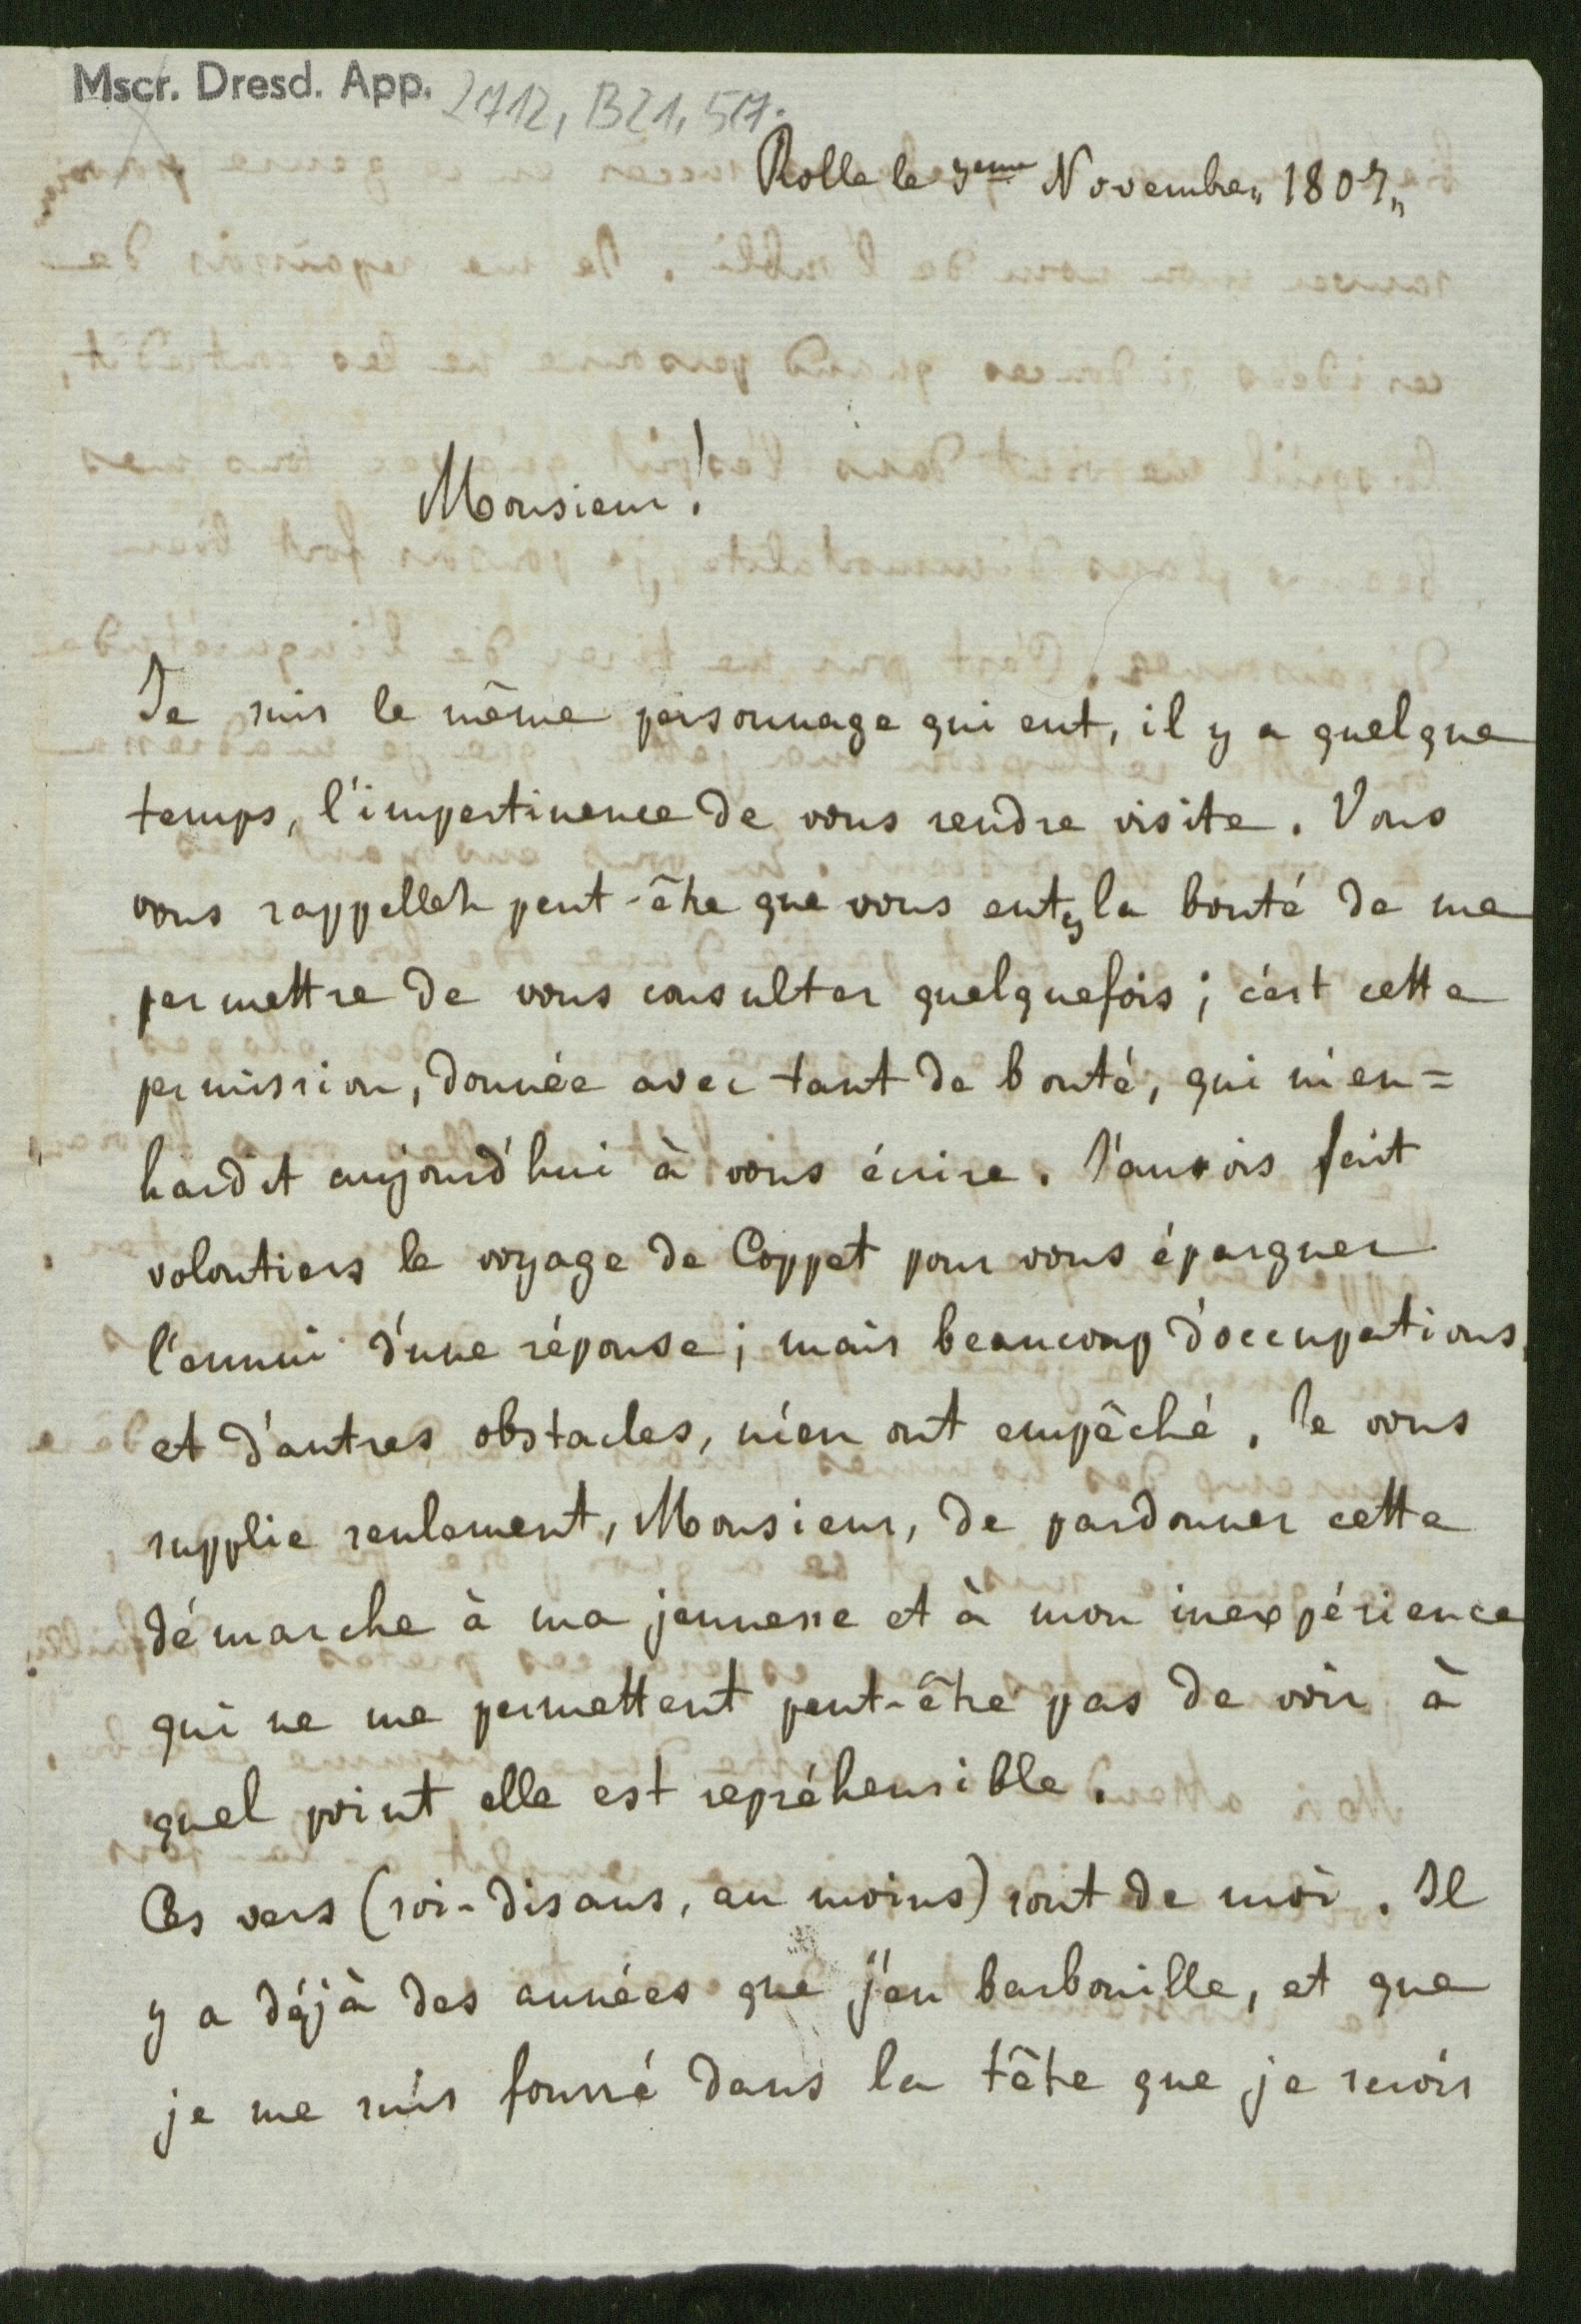 Mscr. Dresd. App. 2712, B21, 57.
Rolle le 3eme Novembre„ 1807„
Monsieur!
Je suis le même personnage qui eut, il y a quelque
temps, l'impertinence de vous rendre visite. Vous
vous rappellez peut-être que vous eutes la bonté de me
permettre de vous consulter quelquefois; c'est cette
permission, donnée avec tant de bonté, qui m'en=
hardit aujourd'hui à vous écrire. J'aurois fait
volontiers le voyage de Coppet pour vous épargner
l'ennui d'une réponse; mais beaucoup d'occupations,
et d'autres obstacles, m'en ont empêché. Je vous
supplie seulement, Monsieur, de pardonner cette
démarche à ma jeunesse et à mon inexpérience
qui ne me permettent peut-être pas de voir à
quel point elle est repréhensible.
Ces vers (soi-disans, au moins) sont de moi. Il
y a déjà des années que j'en barbouille, et que
je me suis fourré dans la tête que je serois